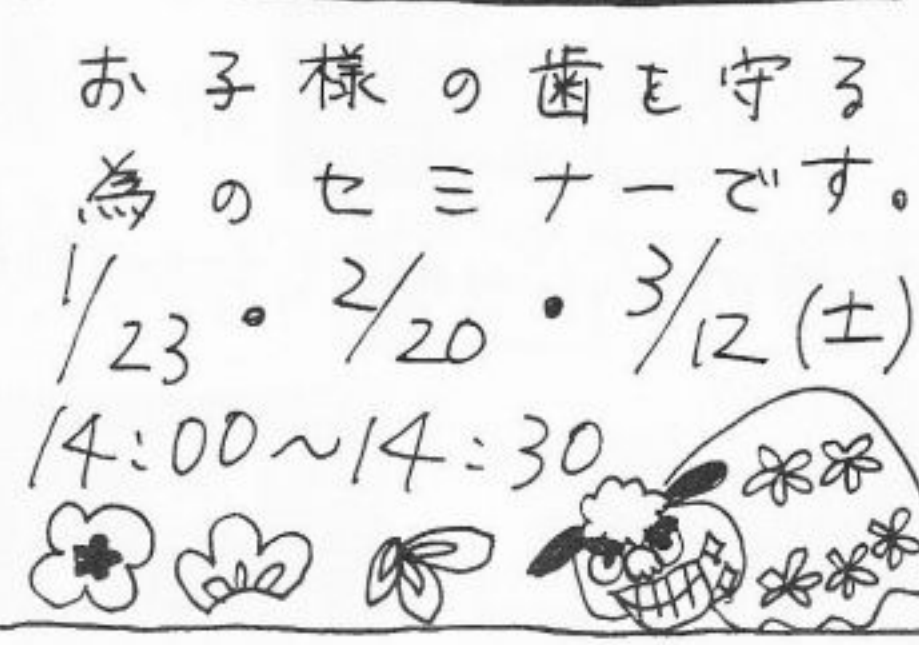 お子様の歯を守る
為のセミナーです。
1/23・2/20・3/12(土)
14:00~14:30